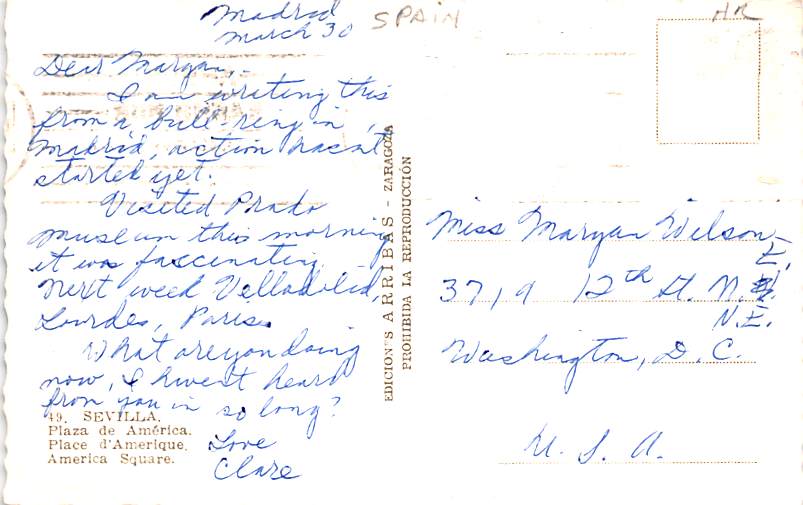 Madrid
March 30
SPAIN
HR
Dear Maryan,-
I am writing this
from a bull-ring in
Madrid, action hasn't
started yet.
Visited Prado
museum this morning
it was fascinating.
Next week Velladolid,
Lourdes, Paris.
What are you doing
now, I haven't heard
from you in so long?
Love
Clare
49. SEVILLA.
Plaza de América.
Place d'Amerique.
America Square.
EDICION'S ARRIBAS - ZARAGOZA
PROHIBIDA LA REPRODUCCIÓN
Miss Maryan Wilson
3719 12th St. N. E.
N.E.
Washington, D. C.
U. S. A.